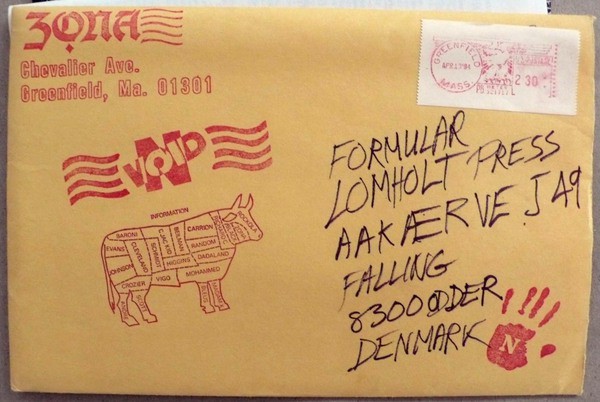 ZONA
Chevalier Ave.
Greenfield, Ma. 01301
GREENFIELD
APR 17'84
MASS.
2 30
N VOID
INFORMATION
BARONI
EVANS
CLEVELAND
SCHMIDT
C. JACKS
BELMAN
CARRION
ROCKOLA
RANDOM
JOHNSON
HIGGINS
DADALAND
CROZIER
VIGG
MOHAMMED
FORMULAR
LOMHOLT PRESS
AAKÆRVEJ 49
FALLING
8300 ODDER
DENMARK
N